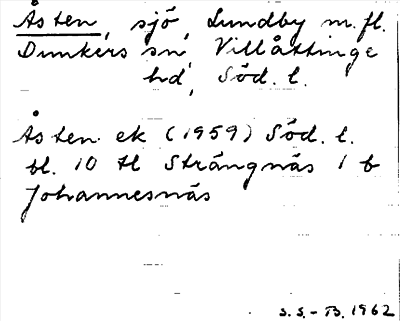 Åsten, sjö, Lundby m.fl.
Dunkers sn, Villåttinge
hd, Söd. l.
Åsten ek (1959) Söd. l.
bl. 10 tl Strängnäs 1 b
Johannesnäs
S.S.-B. 1962